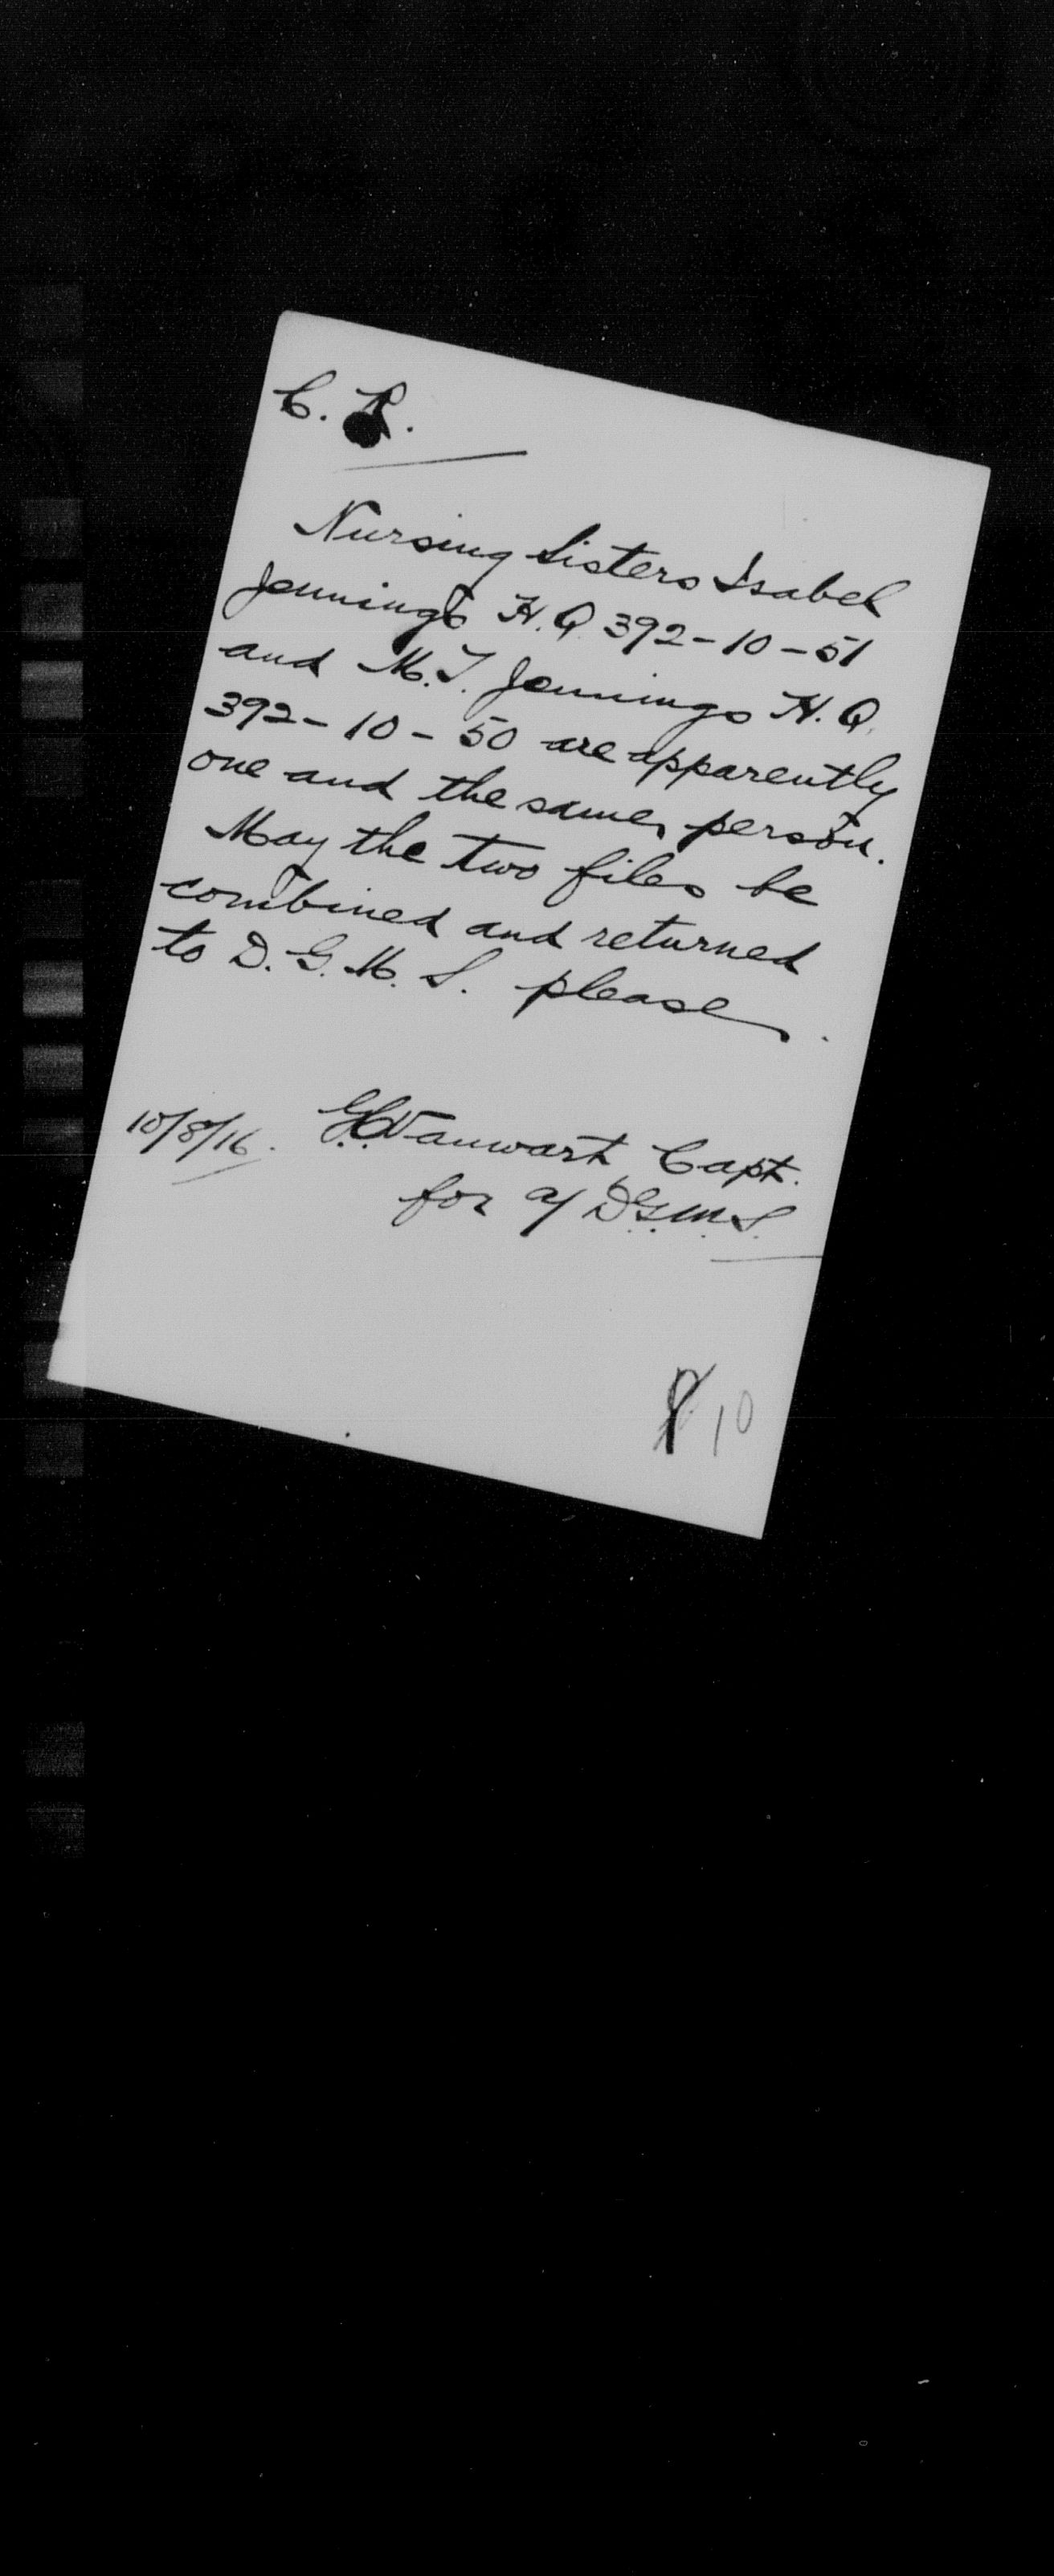 C. R.
Nursing Sisters Isabel
Jennings H.Q. 392-10-51
and M.I. Jennings H.Q.
392-10-50 are apparently
one and the same person.
May the two files be
combined and returned
to D.G.M.S. please.
10/8/16. G.C. Vanwart Capt.
for a/ D.G.M.S.
10